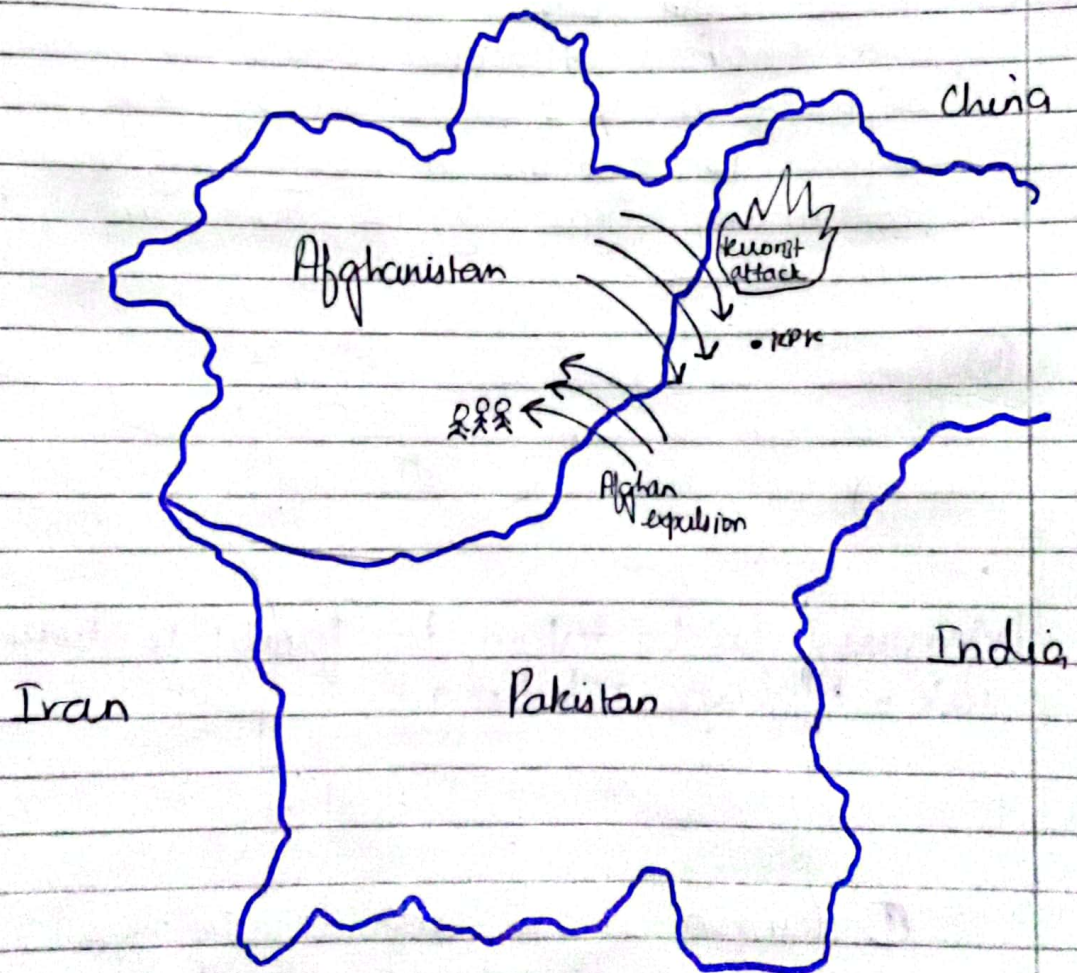 China
Afghanistan
attack
KPK
Afghan
expulsion
India
Iran
Pakistan